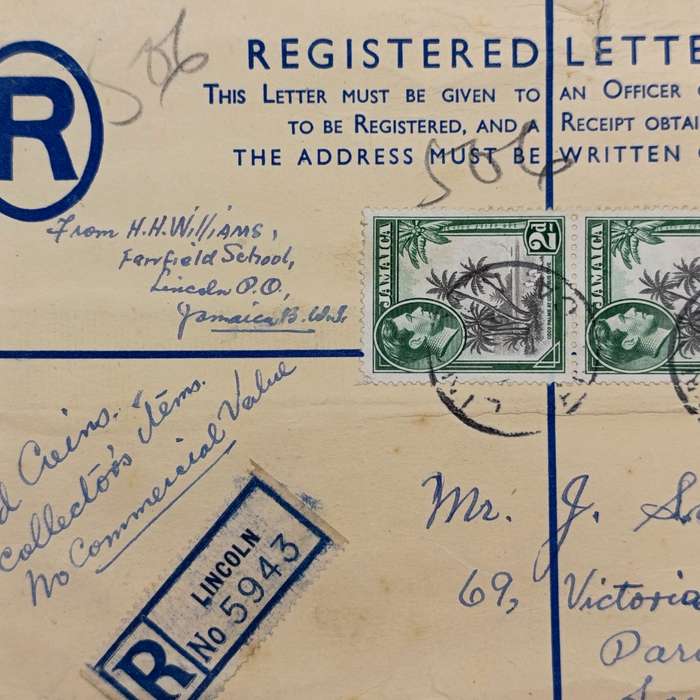 506
R
REGISTERED LETTE
THIS LETTER MUST BE GIVEN TO AN OFFICER
TO BE REGISTERED, AND A RECEIPT OBTAI
THE ADDRESS MUST BE WRITTEN
506
From H.H. Williams,
Farefield School,
Lincoln P.O.,
Jamaica B.W.I.
JAMAICA
2d
JAMAICA
d Coins.
collectors items.
No Commercial Value
R
LINCOLN
No 5943
Mr. J. S
69, Victoria
Par